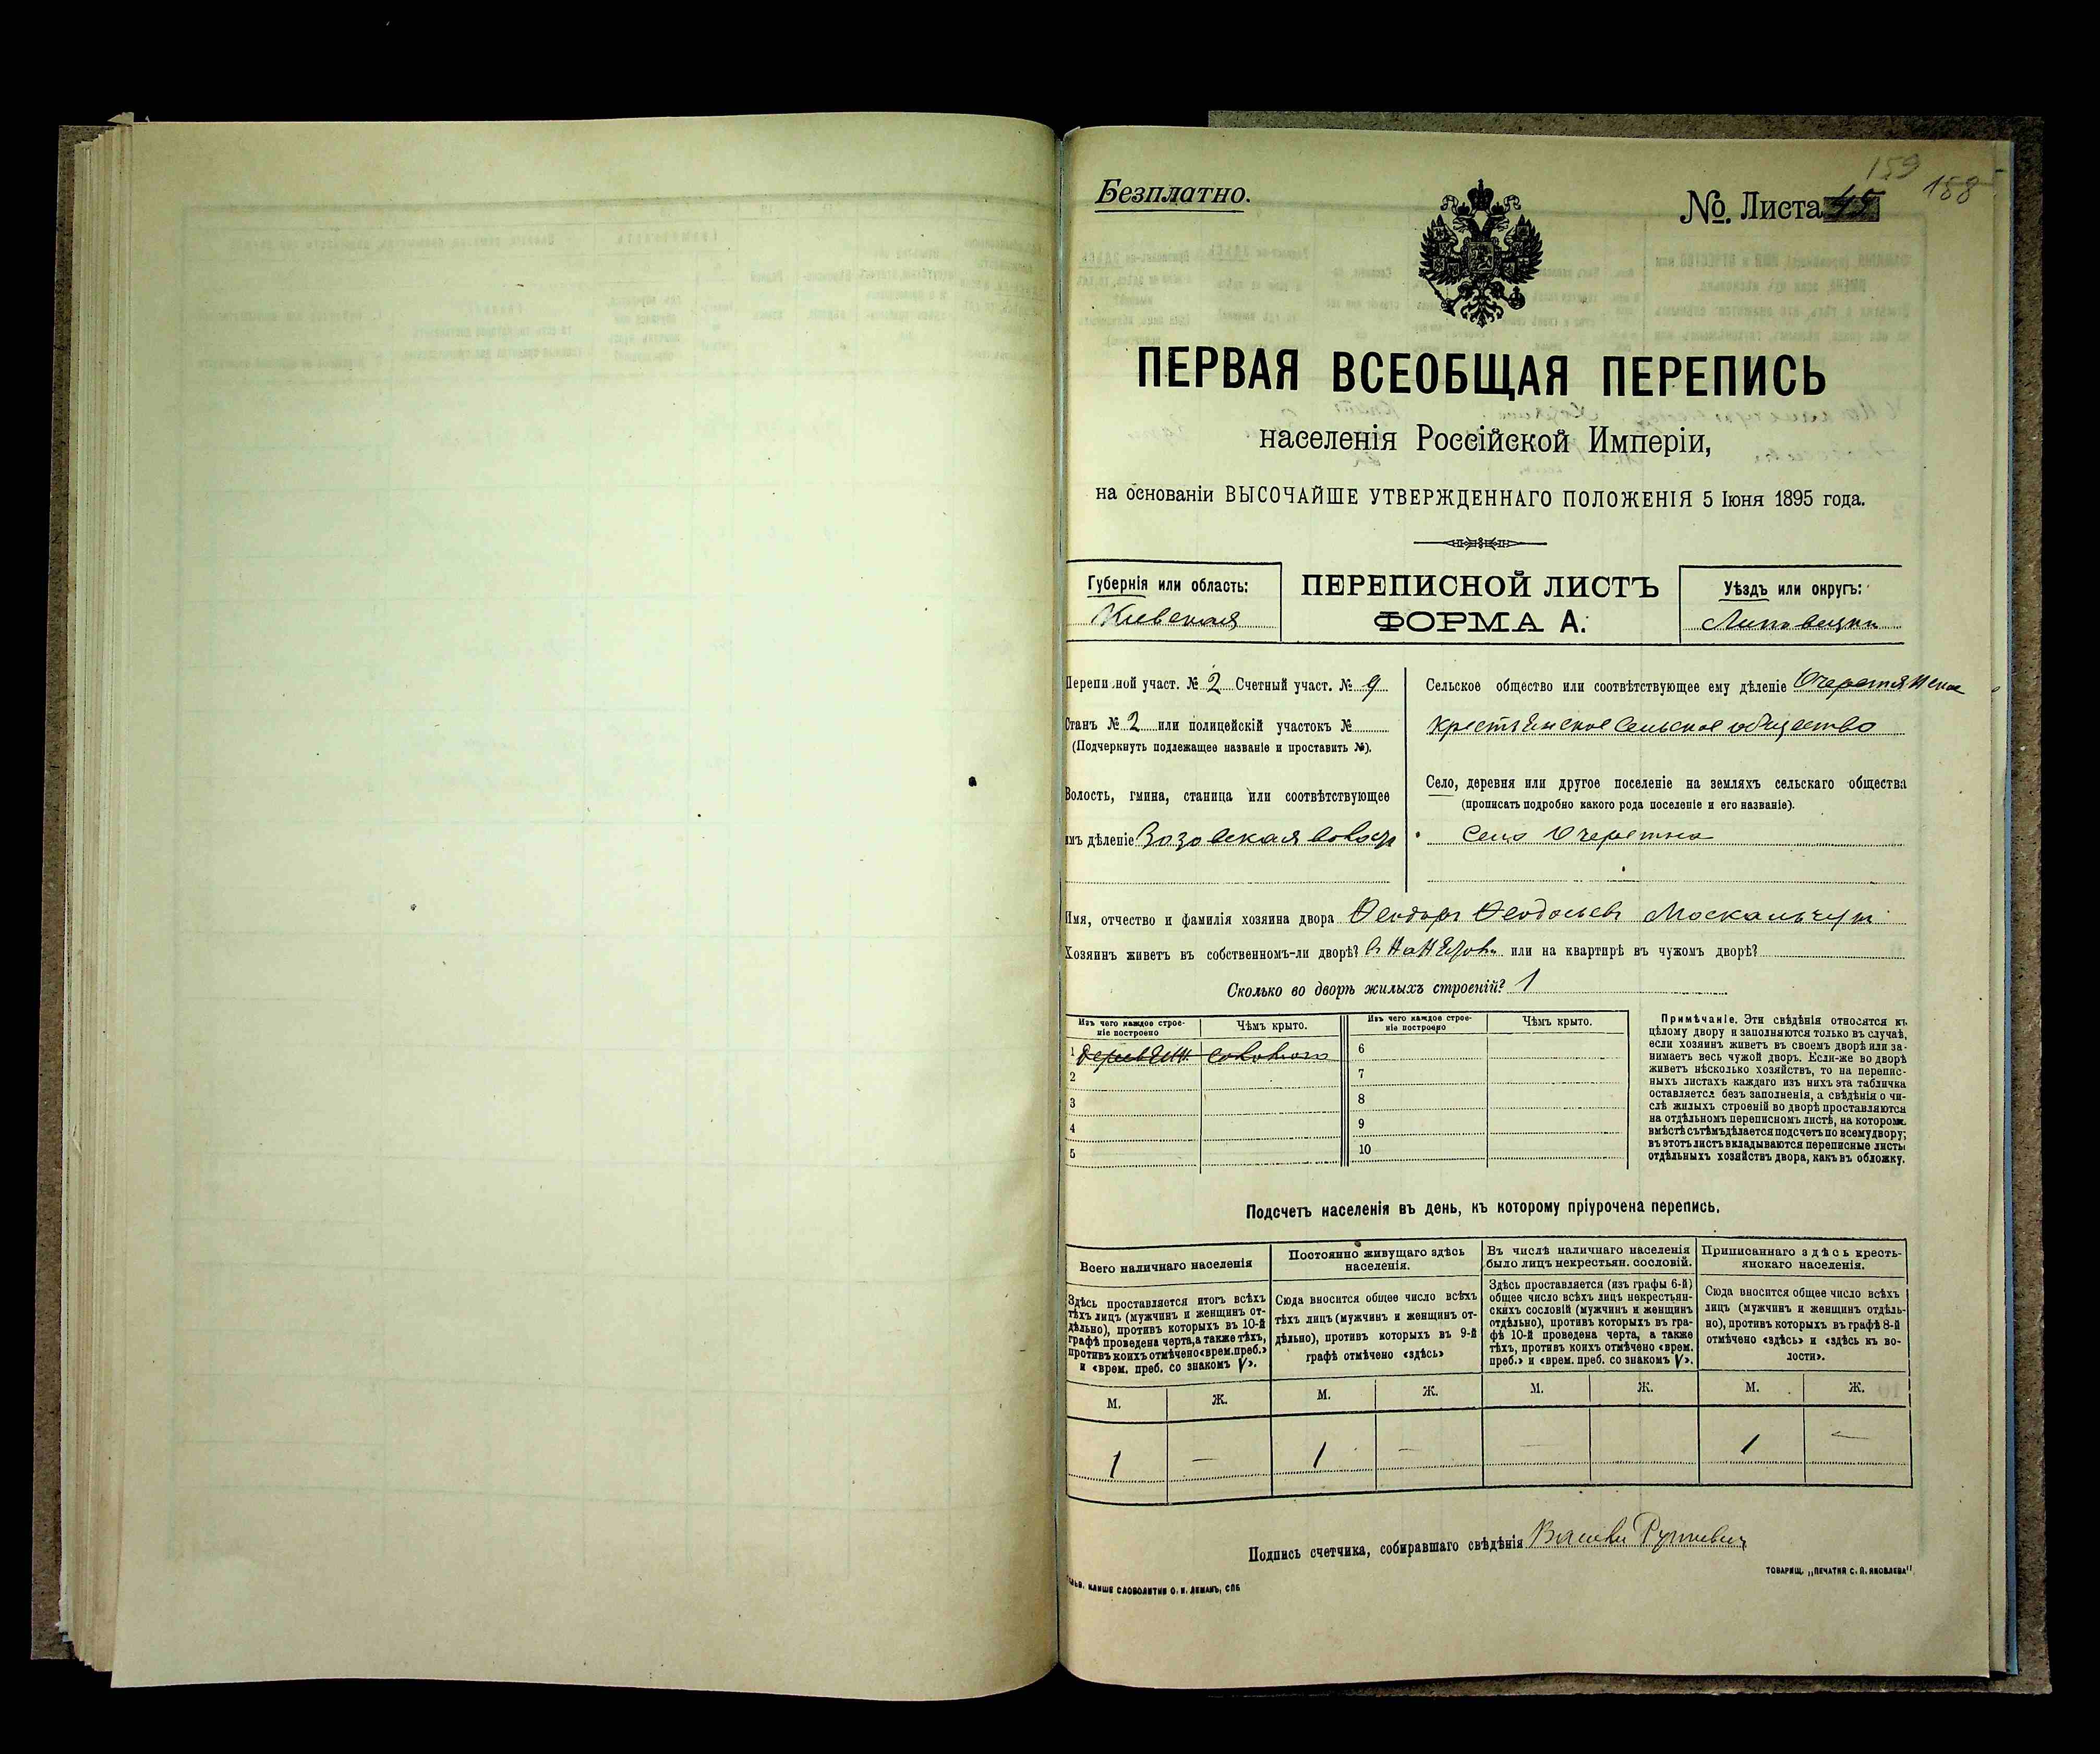 159
188
Безплатно.
№ Листа 45
ПЕРВАЯ ВСЕОБЩАЯ ПЕРЕПИСЬ
населенія Россійской Имперіи,
на основаніи ВЫСОЧАЙШЕ УТВЕРЖДЕННАГО ПОЛОЖЕНІЯ 5 Іюня 1895 года.
Губернія или область:
Кіевская
ПЕРЕПИСНОЙ ЛИСТЪ
ФОРМА А.
Уѣздъ или округъ:
Липовецкій
Перепи ной участ. № 2 Счетный участ. № 9
Станъ № 2 или полицейскій участокъ №
(Подчеркнуть подлежащее названіе и проставить №).
Волость, гмина, станица или соотвѣтствующее
имъ дѣленіе Зозовская волость
Сельское общество или соотвѣтствующее ему дѣленіе Очеретянское
крестьянское сельское общество
Село, деревня или другое поселеніе на земляхъ сельскаго общества
(прописать подробно какого рода поселеніе и его названіе).
Село Очеретна
Имя, отчество и фамилія хозяина двора Феодоръ Феодосіевъ Москальчукъ
Хозяинъ живетъ въ собственномъ-ли дворѣ? или на квартирѣ въ чужомъ дворѣ?
Сколько во дворѣ жилыхъ строеній? 1
Изъ чего каждое строе-
ніе построено
Чѣмъ крыто.
Изъ чего каждое строе-
ніе построено
Чѣмъ крыто.
1 деревян. соломою
2
3
4
5
6
7
8
9
10
Примѣчаніе. Эти свѣдѣнія относятся къ
цѣлому двору и заполняются только въ случаѣ,
если хозяинъ живетъ въ своемъ дворѣ или за-
нимаетъ весь чужой дворъ. Если-же во дворѣ
живетъ нѣсколько хозяйствъ, то на перепис-
ныхъ листахъ каждаго изъ нихъ эта табличка
оставляется безъ заполненія, а свѣдѣнія о чи-
слѣ жилыхъ строеній во дворѣ проставляются
на отдѣльномъ переписномъ листѣ, на которомъ
вмѣстѣ съ тѣмъ дѣлается подсчетъ по всему двору;
въ этотъ листъ вкладываются переписные листы
отдѣльныхъ хозяйствъ двора, какъ въ обложку.
Подсчетъ населенія въ день, къ которому пріурочена перепись.
Всего наличнаго населенія
Здѣсь проставляется итогъ всѣхъ
тѣхъ лицъ (мужчинъ и женщинъ от-
дѣльно), противъ которыхъ въ 10-й
графѣ проведена черта, а также тѣхъ,
противъ коихъ отмѣчено «врем. преб.»
и «врем. преб. со знакомъ V».
Постоянно живущаго здѣсь
населенія.
Сюда вносится общее число всѣхъ
тѣхъ лицъ (мужчинъ и женщинъ от-
дѣльно), противъ которыхъ въ 9-й
графѣ отмѣчено «здѣсь»
Въ числѣ наличнаго населенія
было лицъ некрестьян. сословій.
Здѣсь проставляется (изъ графы 6-й)
общее число всѣхъ лицъ некрестьян-
скихъ сословій (мужчинъ и женщинъ
отдѣльно), противъ которыхъ въ гра-
фѣ 10-й проведена черта, а также
тѣхъ, противъ коихъ отмѣчено «врем.
преб.» и «врем. преб. со знакомъ V».
Приписаннаго здѣсь кресть-
янскаго населенія.
Сюда вносится общее число всѣхъ
лицъ (мужчинъ и женщинъ отдѣль-
но), противъ которыхъ въ графѣ 8-й
отмѣчено «здѣсь» и «здѣсь къ во-
лости».
М. Ж. М. Ж. М. Ж. М. Ж.
1 — 1 — — 1 —
Подпись счетчика, собиравшаго свѣдѣнія
КЛИШЕ СЛОВОЛИТНИ О. И. ЛЕМАНЪ, СПБ
ТОВАРИЩ. „ПЕЧАТНЯ С. П. ЯКОВЛЕВА".